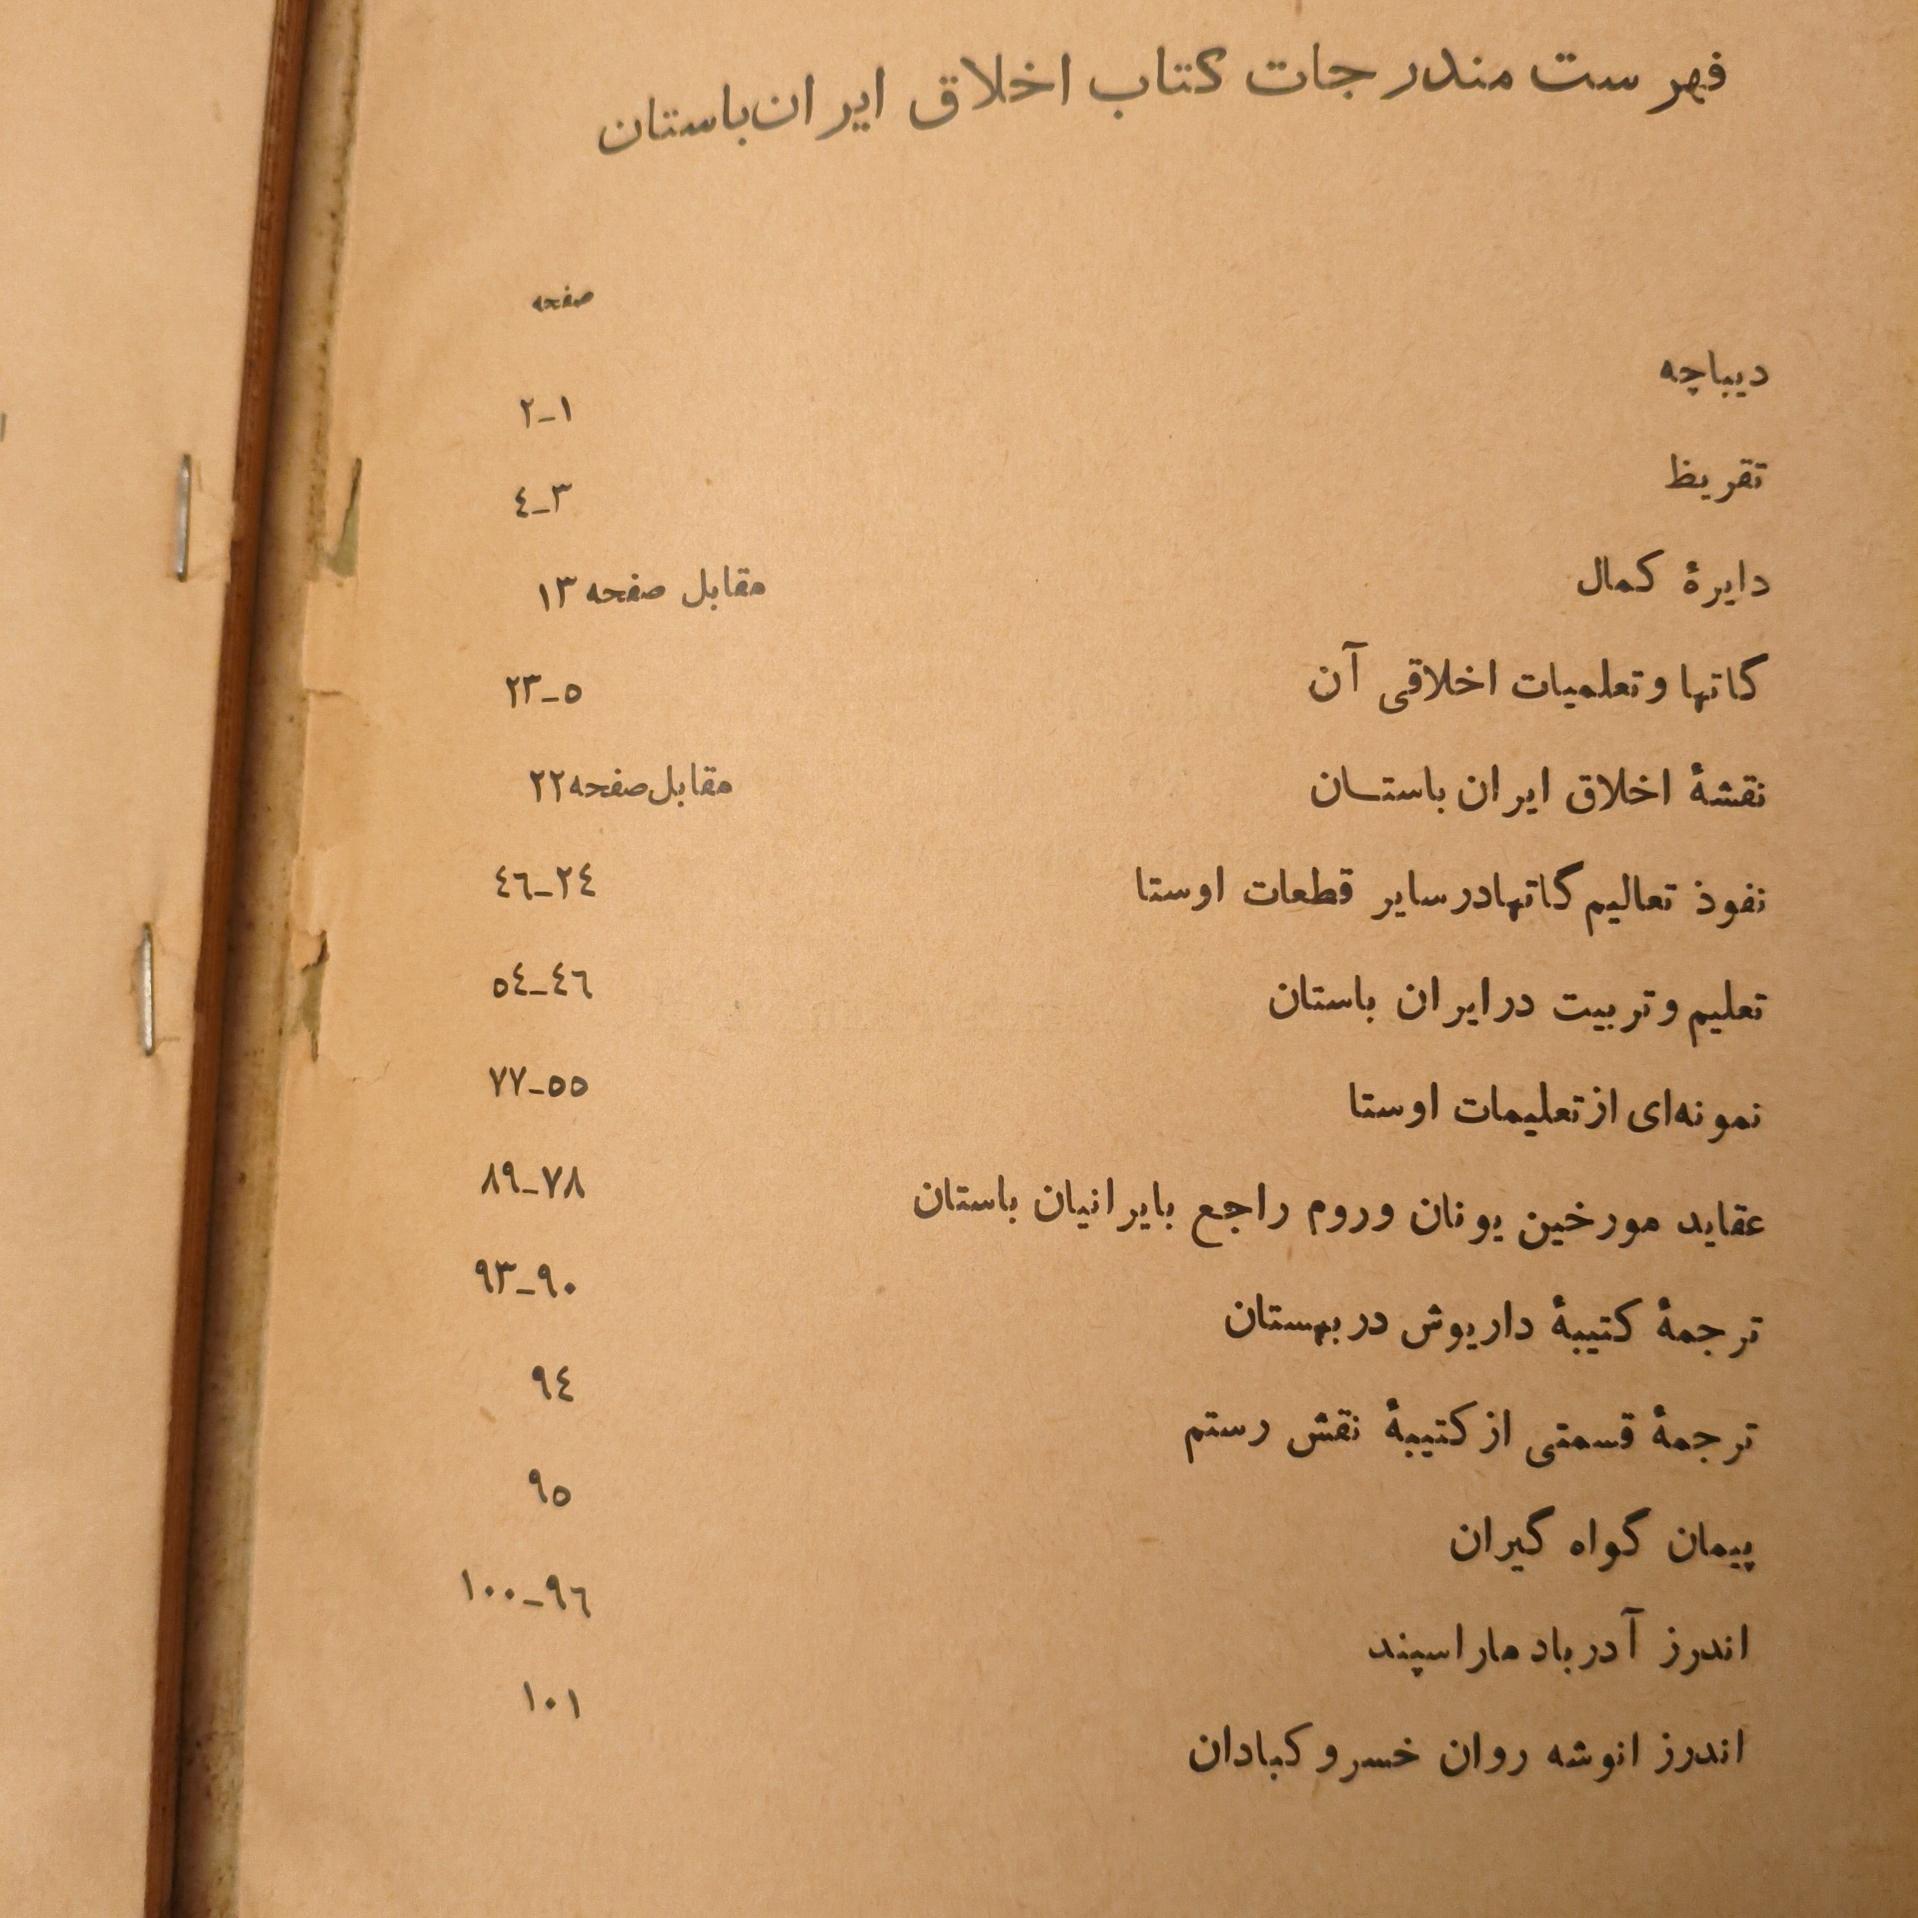 فهرست مندرجات کتاب اخلاق ایران باستان
صفحه
دیباچه ۱-۲
تقریظ ۳-٤
دایرهٔ کمال مقابل صفحه ۱۳
گاتها و تعلمیات اخلاقی آن ٥-۲۳
نقشهٔ اخلاق ایران باستان مقابل صفحه ۲۲
نفوذ تعالیم گاتها در سایر قطعات اوستا ۲٤-٤٦
تعلیم و تربیت در ایران باستان ٤٦-٥٤
نمونه‌ای از تعلیمات اوستا ٥٥-۷۷
عقاید مورخین یونان و روم راجع بایرانیان باستان ۷۸-۸۹
ترجمهٔ کتیبهٔ داریوش در بهستان ۹۰-۹۳
ترجمهٔ قسمتی از کتیبهٔ نقش رستم ۹٤
پیمان گواه گیران ۹٥
اندرز آدرباد ماراسپند ۹٦-۱۰۰
اندرز انوشه روان خسرو کبادان ۱۰۱